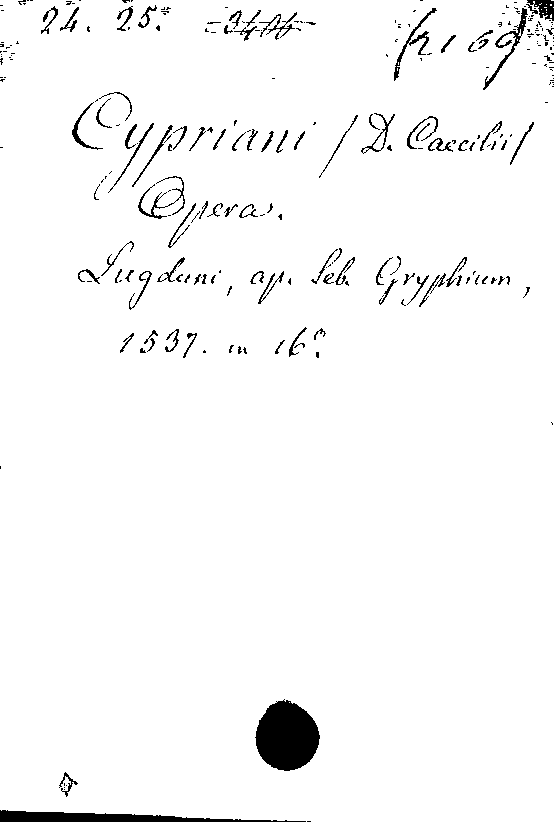 24. 25. 3406
Cypriani / D. Caecilii /
Opera.
Lugduni, ap. Seb. Gryphium,
1537. in 16º.